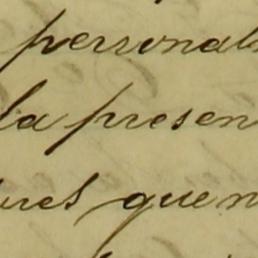 personal
la presen
ures quen